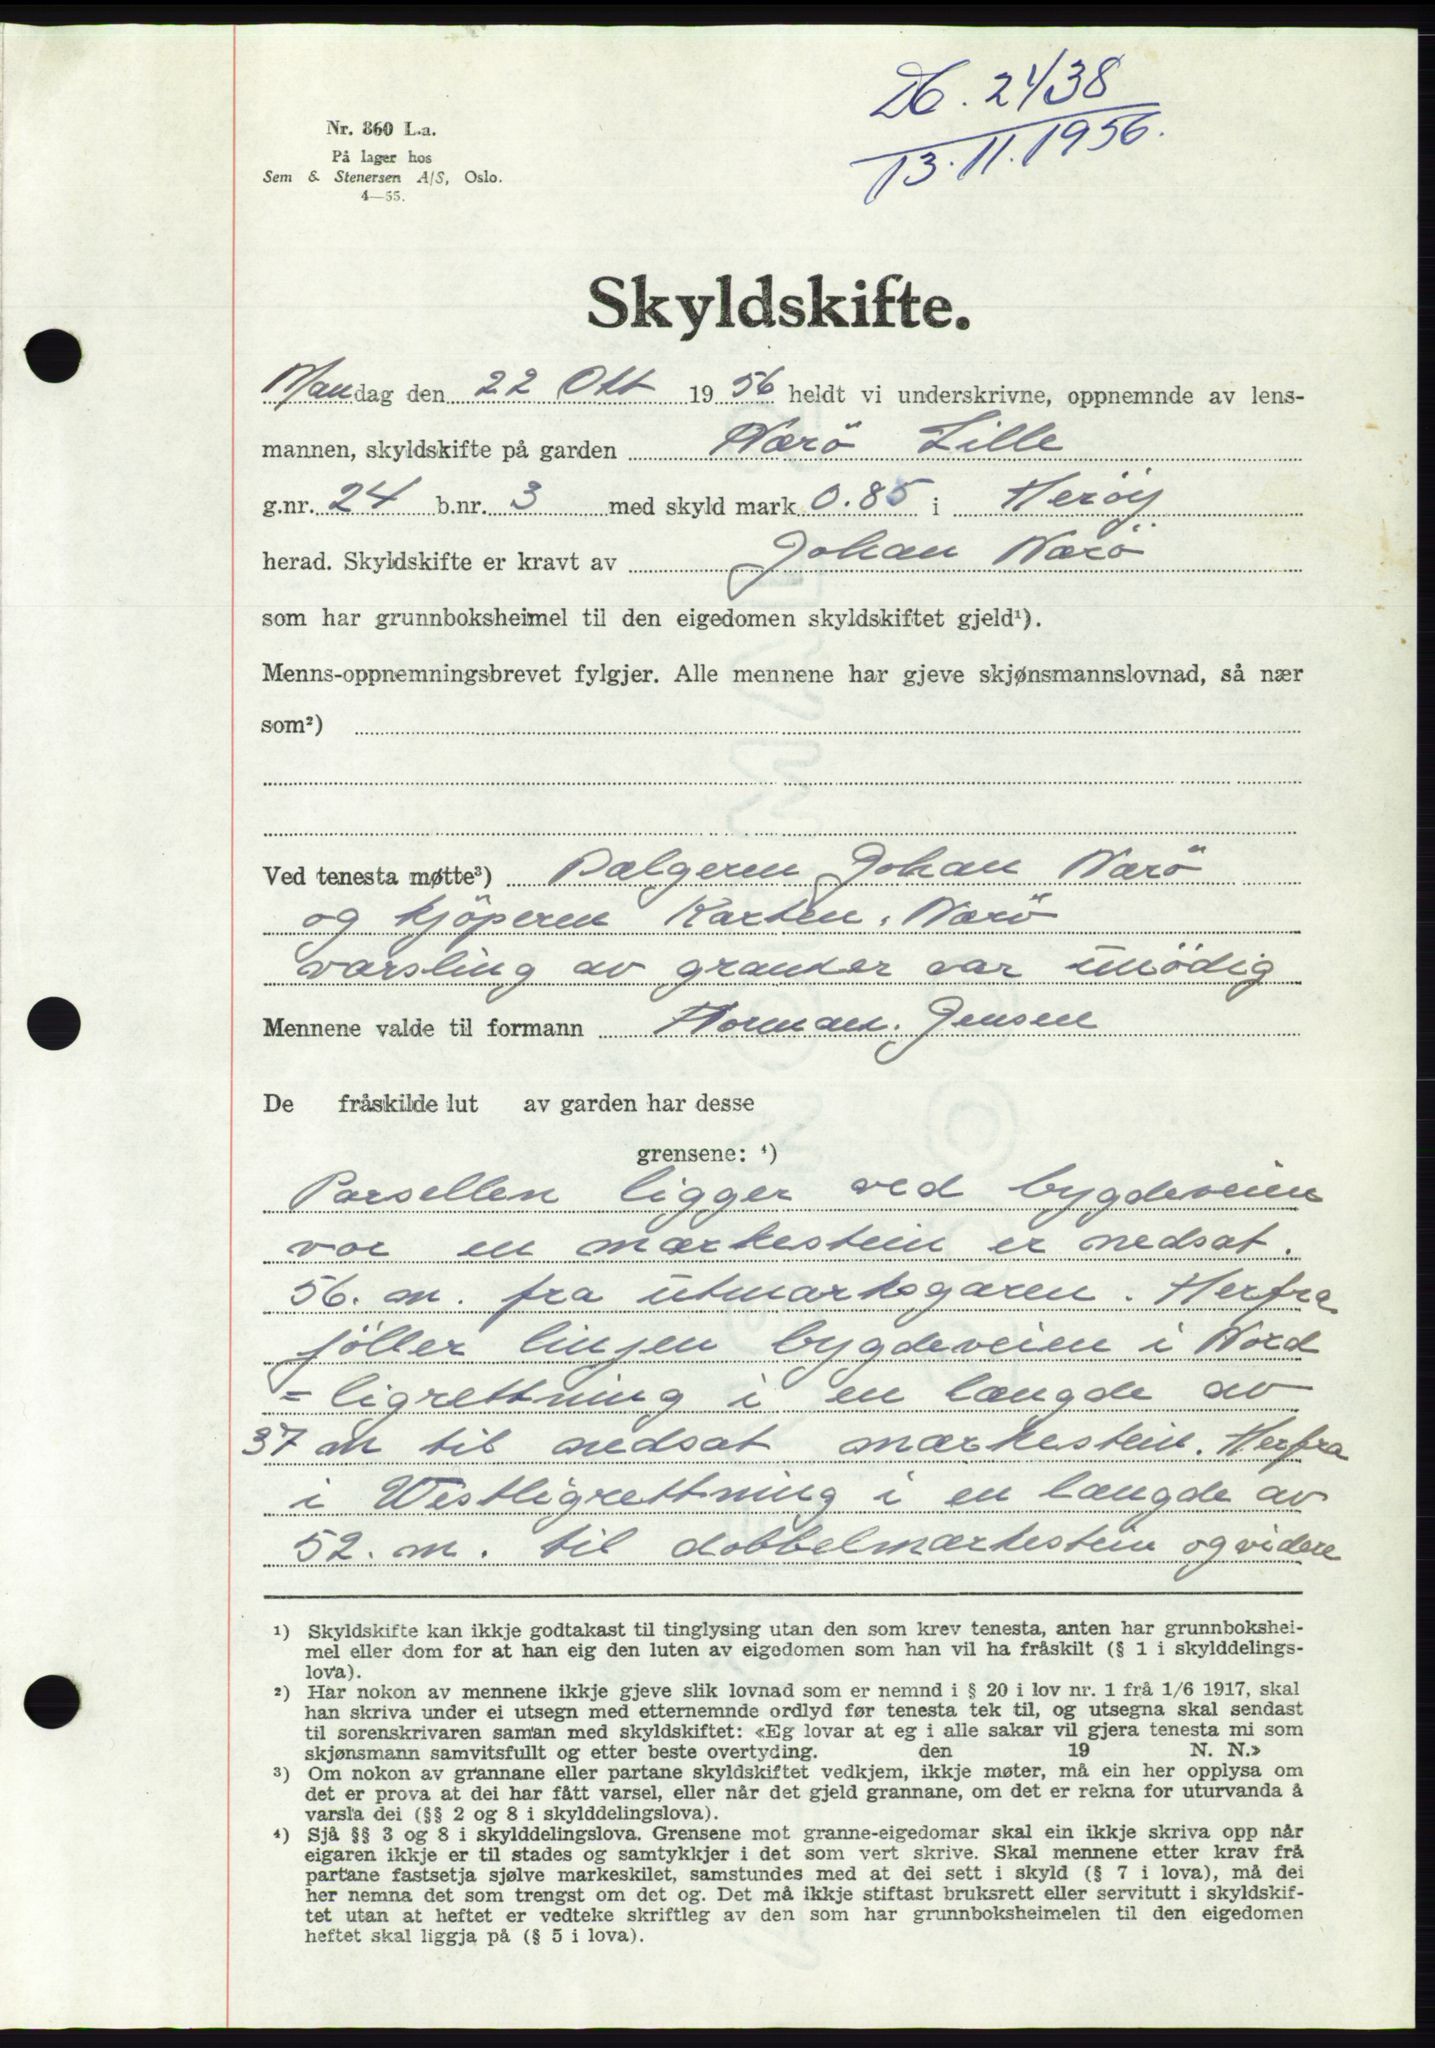 Db. 2438
13.11.1956.
Nr. 860 L.a.
På lager hos
Sem & Stenersen A/S, Oslo.
4—55.
Skyldskifte.
Mandag den 22 Okt 1956 heldt vi underskrivne, oppnemnde av lens-
mannen, skyldskifte på garden Nærö Lille
g.nr. 24 b.nr. 3 med skyld mark 0.85 i Heröy
herad. Skyldskifte er kravt av Johan Nærö
som har grunnboksheimel til den eigedomen skyldskiftet gjeld¹).
Menns-oppnemningsbrevet fylgjer. Alle mennene har gjeve skjønsmannslovnad, så nær
som²)
Ved tenesta møtte³) Sælgeren Johan Nærö
og kjöperen Karsten. Nærö
varsling av grander var unödig
Mennene valde til formann Norman. Jensen
De fråskilde lut av garden har desse
grensene: ⁴)
Parsellen ligger ved bygdeveien
vor en mærkestein er nedsat.
56. m. fra utmarksgaren. Herfra
föller linjen bygdeveien i Nord
=ligrettning i en længde av
37 m til nedsat mærkestein. Herfra
i Westligrettning i en længde av
52. m. til dobbelmærkestein og videre
¹) Skyldskifte kan ikkje godtakast til tinglysing utan den som krev tenesta, anten har grunnbokshei-
mel eller dom for at han eig den luten av eigedomen som han vil ha fråskilt (§ 1 i skylddelings-
lova).
²) Har nokon av mennene ikkje gjeve slik lovnad som er nemnd i § 20 i lov nr. 1 frå 1/6 1917, skal
han skriva under ei utsegn med etternemnde ordlyd før tenesta tek til, og utsegna skal sendast
til sorenskrivaren saman med skyldskiftet: «Eg lovar at eg i alle sakar vil gjera tenesta mi som
skjønsmann samvitsfullt og etter beste overtyding. den 19 N. N.»
³) Om nokon av grannane eller partane skyldskiftet vedkjem, ikkje møter, må ein her opplysa om
det er prova at dei har fått varsel, eller når det gjeld grannane, om det er rekna for uturvanda å
varsla dei (§§ 2 og 8 i skylddelingslova).
⁴) Sjå §§ 3 og 8 i skylddelingslova. Grensene mot granne-eigedomar skal ein ikkje skriva opp når
eigaren ikkje er til stades og samtykkjer i det som vert skrive. Skal mennene etter krav frå
partane fastsetja sjølve markeskilet, samstundes med at dei sett i skyld (§ 7 i lova), må dei
her nemna det som trengst om det og. Det må ikkje stiftast bruksrett eller servitutt i skyldskif-
tet utan at heftet er vedteke skriftleg av den som har grunnboksheimelen til den eigedomen
heftet skal liggja på (§ 5 i lova).